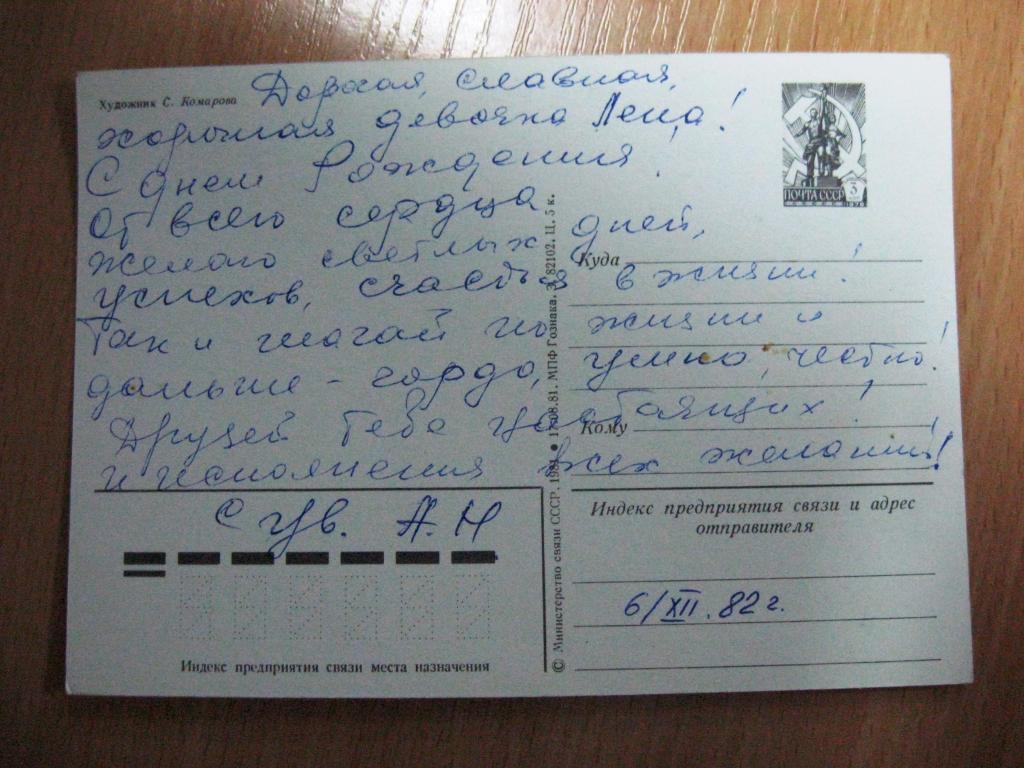 Художник С. Комарова
Дорогая, славная,
хорошая девочка Лена!
С днем Рождения!
От всего сердца
желаю светлых дней,
успехов, счастья в жизни!
Так и шагай по жизни и
дальше - гордо, умно, честно!
Друзей Тебе настоящих!
и исполнения всех желаний!
С ув. А.Н
ПОЧТА СССР 3
1978
Куда
Кому
Индекс предприятия связи и адрес
отправителя
6/XII.82 г.
Индекс предприятия связи места назначения
© Министерство связи СССР. 1981 ● 17.08.81. МПФ Гознака. З. 82102. Ц. 5 к.